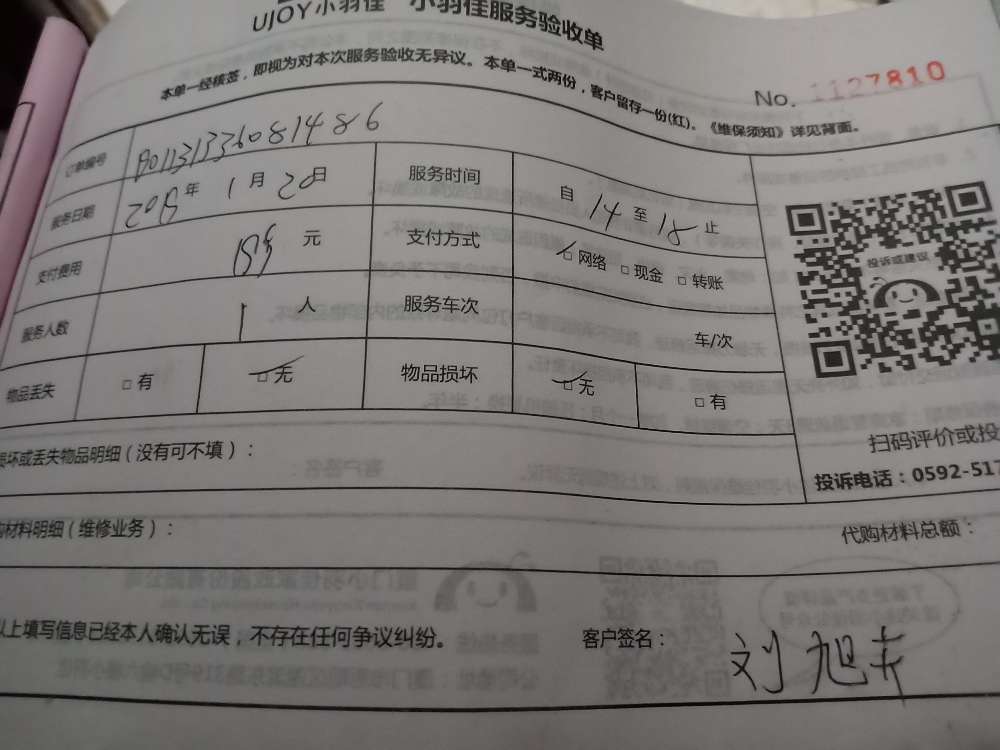 UJOY小羽佳 小羽佳服务验收单
本单一经核签，即视为对本次服务验收无异议。本单一式两份，客户留存一份(红)。《维保须知》详见背面。
No. 1127810
订单编号 B011313360814486
服务日期 年 1 月 20 日 服务时间 自 14 至 18 止
支付费用 元 支付方式 □网络 □现金 □转账
服务人数 1 人 服务车次 车/次
物品丢失 □有 □无 物品损坏 □无 □有
投诉或建议
扫码评价或投
投诉电话：0592-517
损坏或丢失物品明细（没有可不填）：
购材料明细（维修业务）： 代购材料总额：
以上填写信息已经本人确认无误，不存在任何争议纠纷。 客户签名： 刘旭